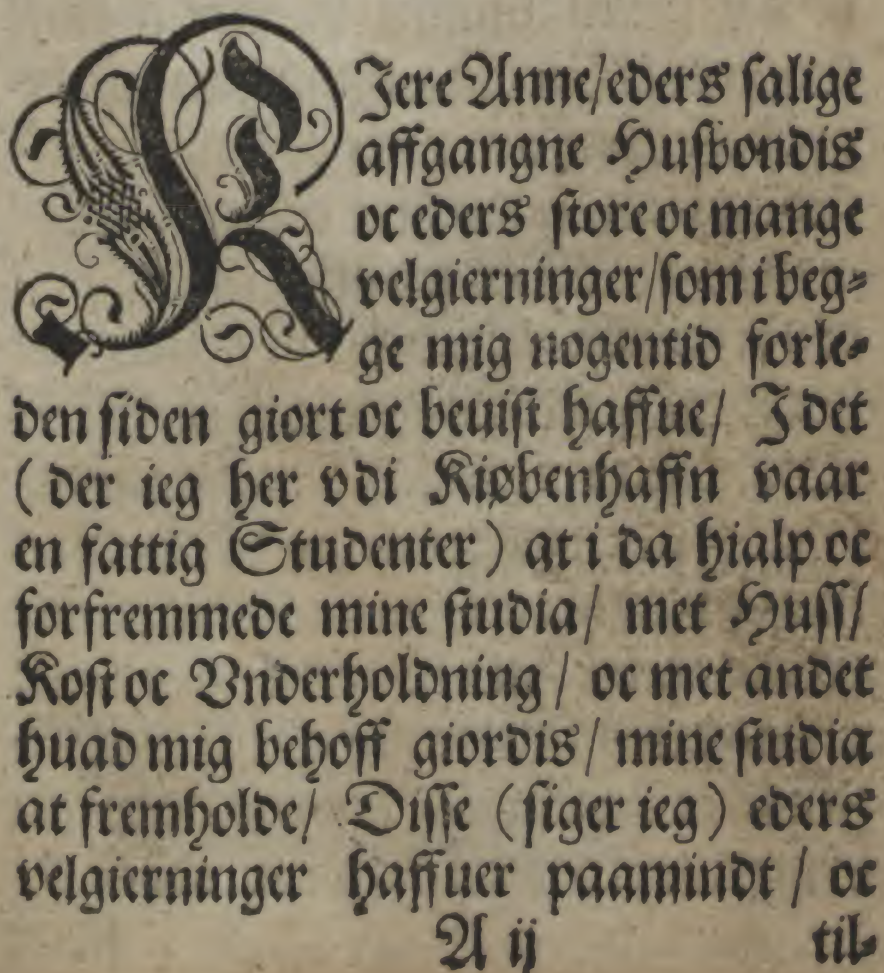 KIere Anne/eders salige
affgangne Husbondis
oc eders store oc mange
velgierninger/som i beg⸗
ge mig nogentid forle⸗
den siden giort oc beuist haffue/ I det
( der ieg her vdi Kiøbenhaffn vaar
en fattig Studenter ) at i da hialp oc
forfremmede mine studia/ met Huss/
Kost oc Vnderholdning / oc met andet
huad mig behoff giordis/ mine studia
at fremholde/ Disse ( siger ieg ) eders
velgierninger haffuer paamindt / oc
A ij til⸗